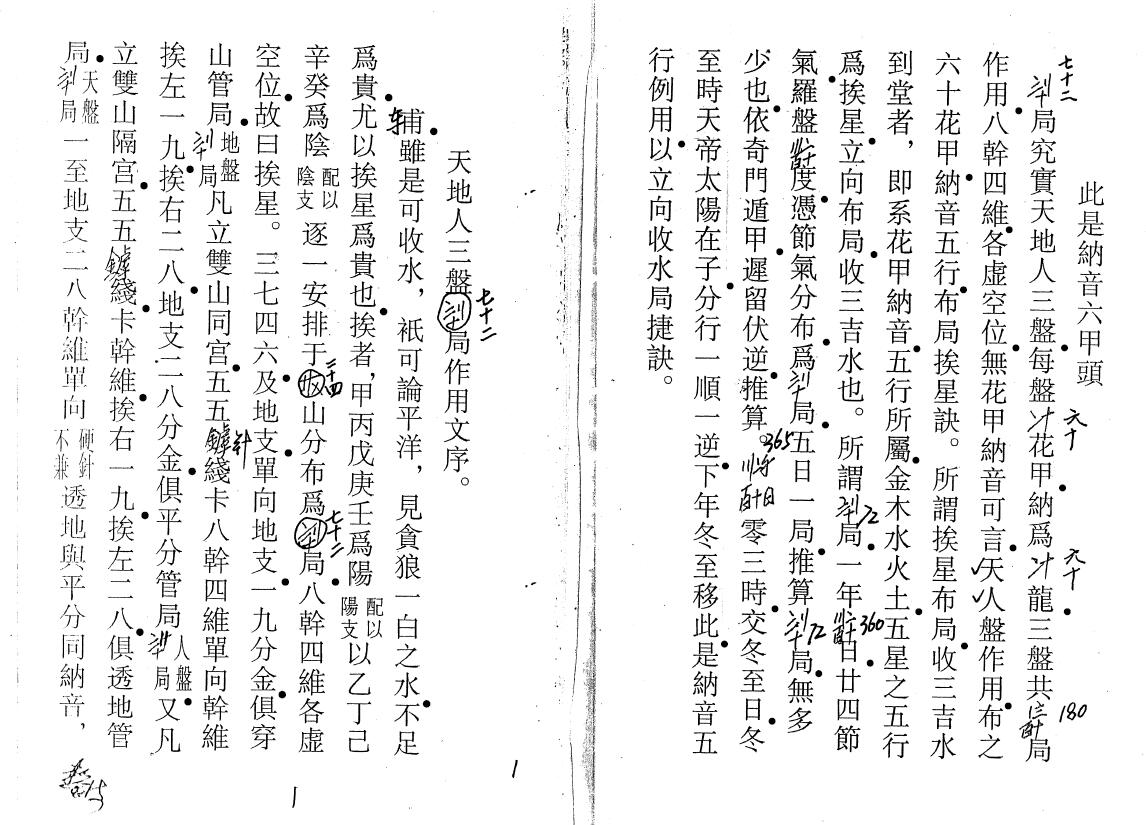 此是納音六甲頭
七十二
局究實天地人三盤每盤花甲納爲龍三盤共局
六十
六十
180
作用八幹四維各虛空位無花甲納音可言天人盤作用布之
六十花甲納音五行布局挨星訣。所謂挨星布局收三吉水
到堂者，即系花甲納音五行所屬金木水火土五星之五行
爲挨星立向布局收三吉水也。所謂局一年日廿四節
72
360
氣羅盤度憑節氣分布爲局五日一局推算局無多
72
少也依奇門遁甲遲留伏逆推算。零三時交冬至日冬
365
至時天帝太陽在子分行一順一逆下年冬至移此是納音五
行例用以立向收水局捷訣。
天地人三盤局作用文序。
七十二
輔雖是可收水，衹可論平洋，見貪狼一白之水不足
爲貴尤以挨星爲貴也挨者，甲丙戊庚壬爲陽配以陽支以乙丁己
辛癸爲陰配以陰支逐一安排于山分布爲局八幹四維各虛
七十二
空位故曰挨星。三七四六及地支單向地支一九分金俱穿
山管局地盤局凡立雙山同宫五五綫卡八幹四維單向幹維
针
挨左一九挨右二八地支二八分金俱平分管局人盤局又凡
立雙山隔宫五五綫卡幹維挨右一九挨左二八俱透地管
局天盤局一至地支二八幹維單向硬針不兼透地與平分同納音，
1
1